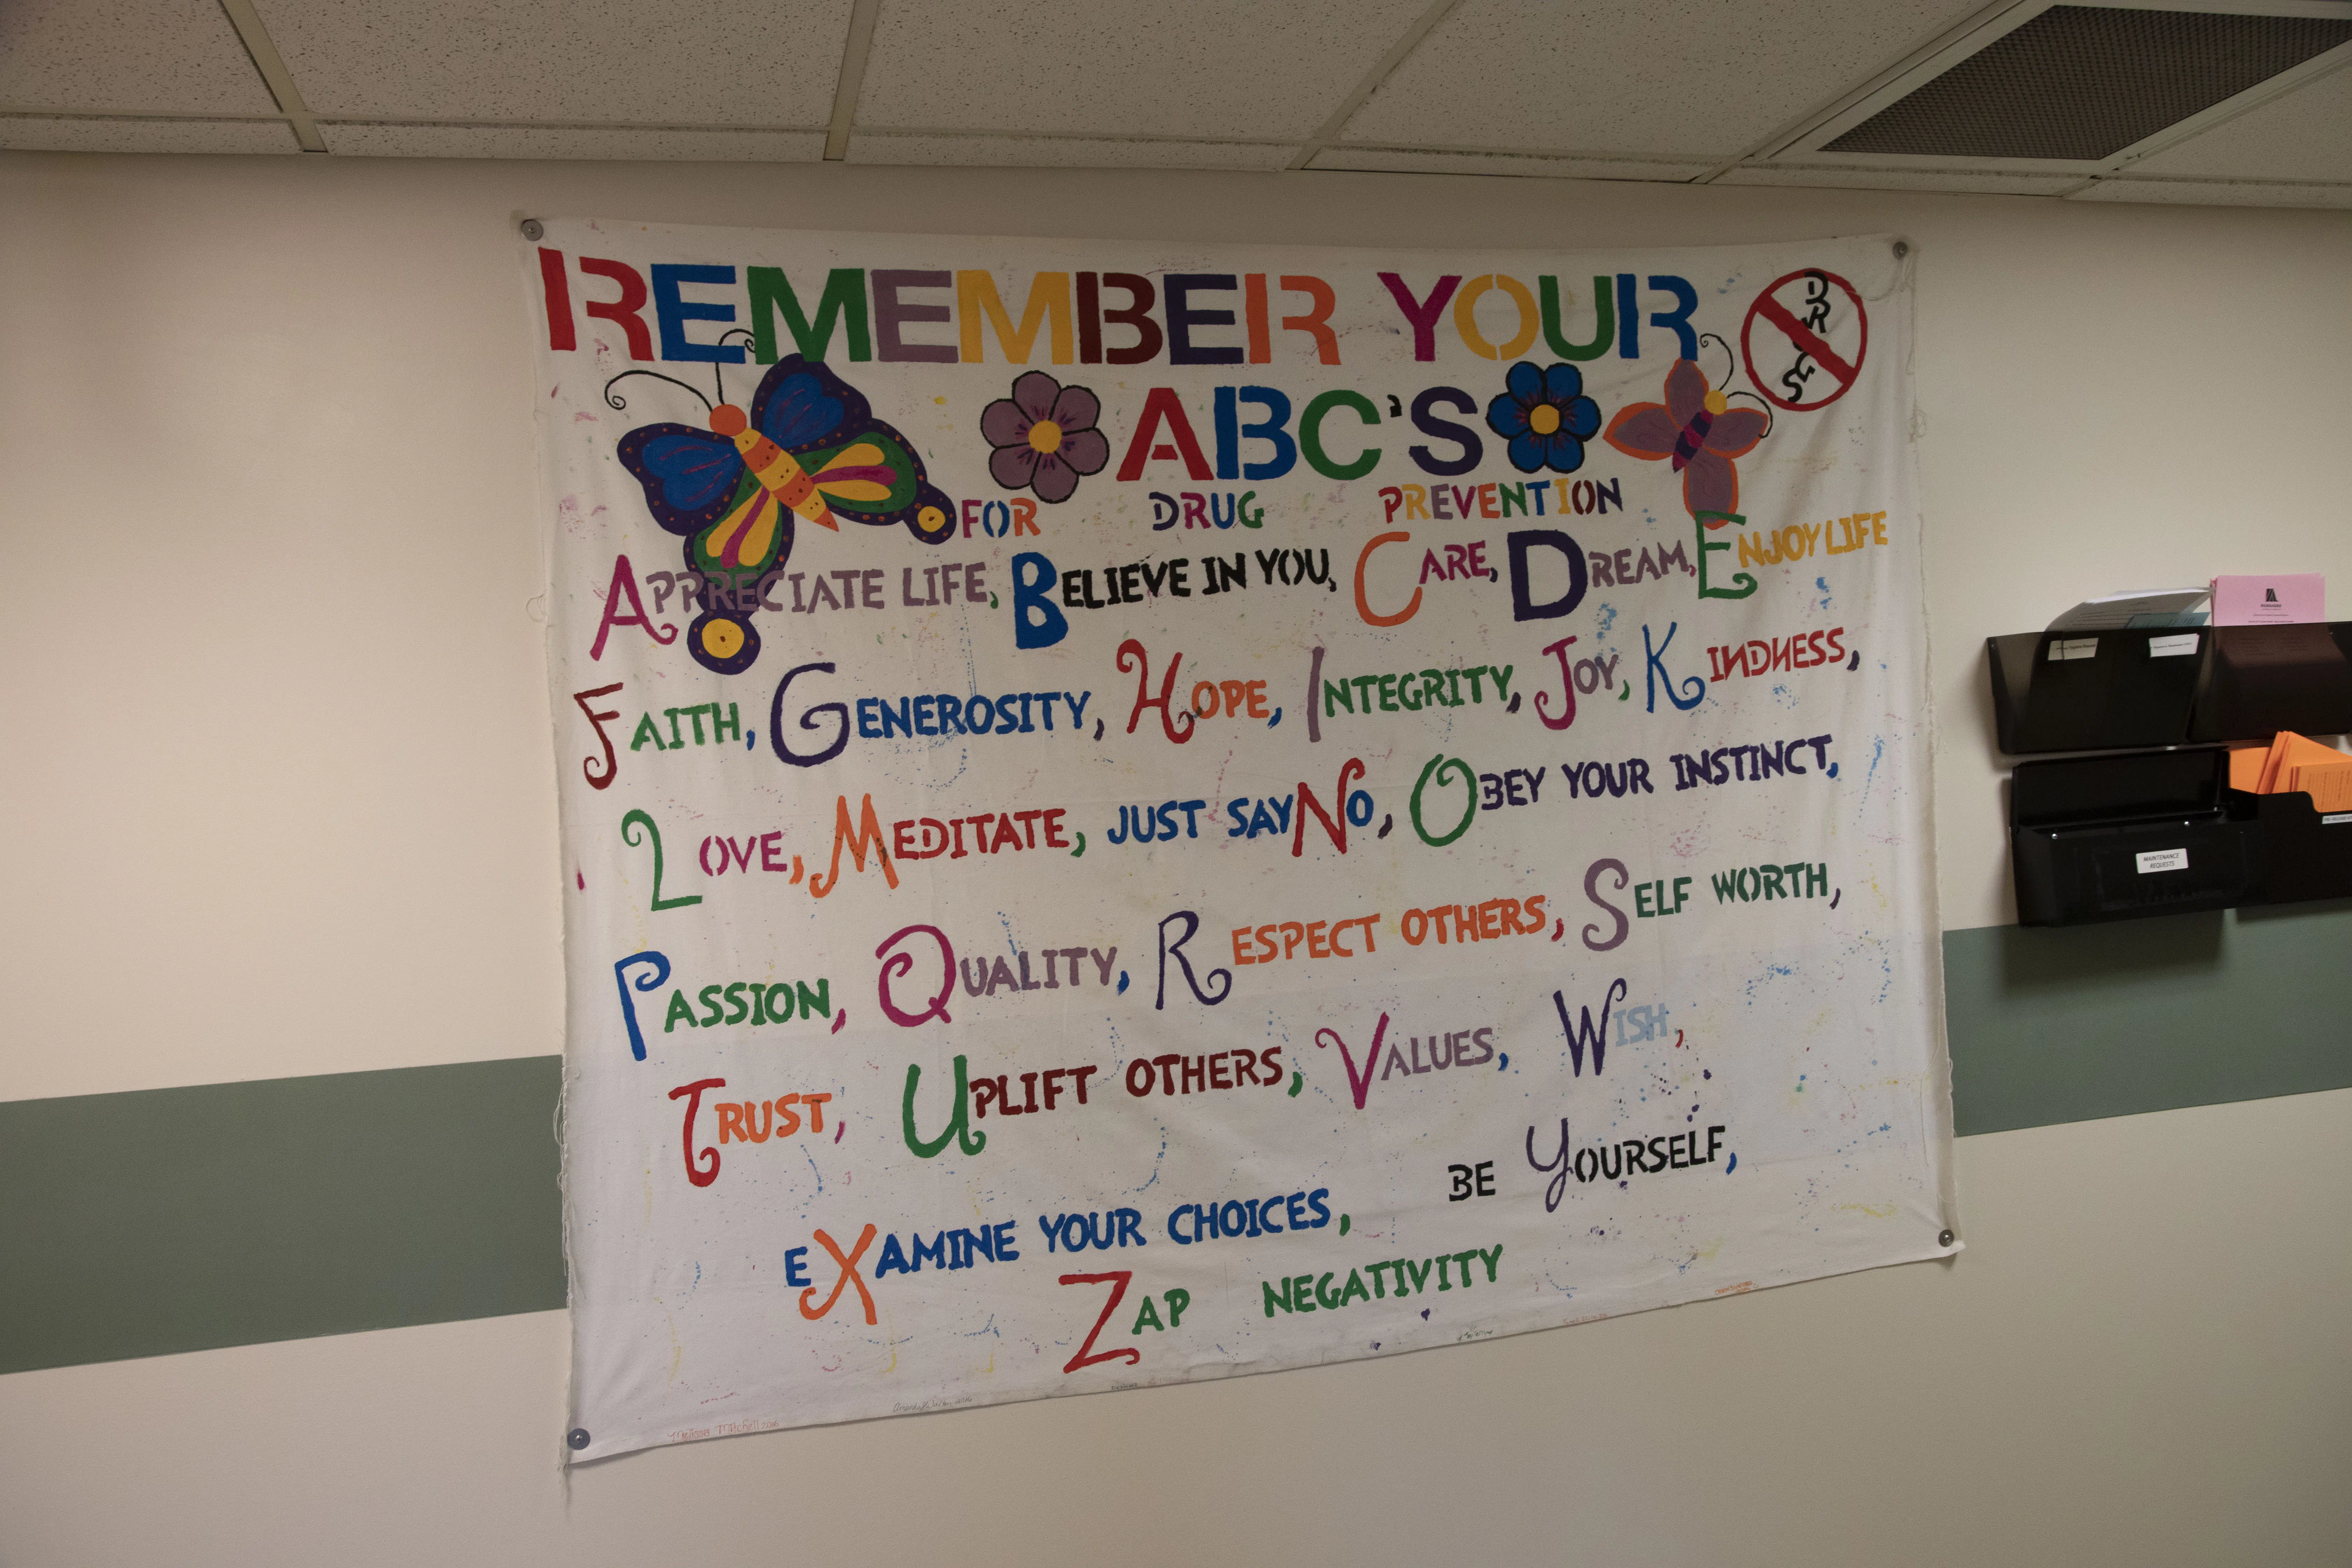 REMEMBER YOUR
DRUGS
ABC'S
FOR DRUG PREVENTION
APPRECIATE LIFE, BELIEVE IN YOU, CARE, DREAM, ENJOY LIFE
FAITH, GENEROSITY, HOPE, INTEGRITY, JOY, KINDNESS,
LOVE, MEDITATE, JUST SAY NO, OBEY YOUR INSTINCT,
PASSION, QUALITY, RESPECT OTHERS, SELF WORTH,
TRUST, UPLIFT OTHERS, VALUES, WISH,
EXAMINE YOUR CHOICES, BE YOURSELF,
ZAP NEGATIVITY
Melissa Mitchell
MAINTENANCE
REQUESTS